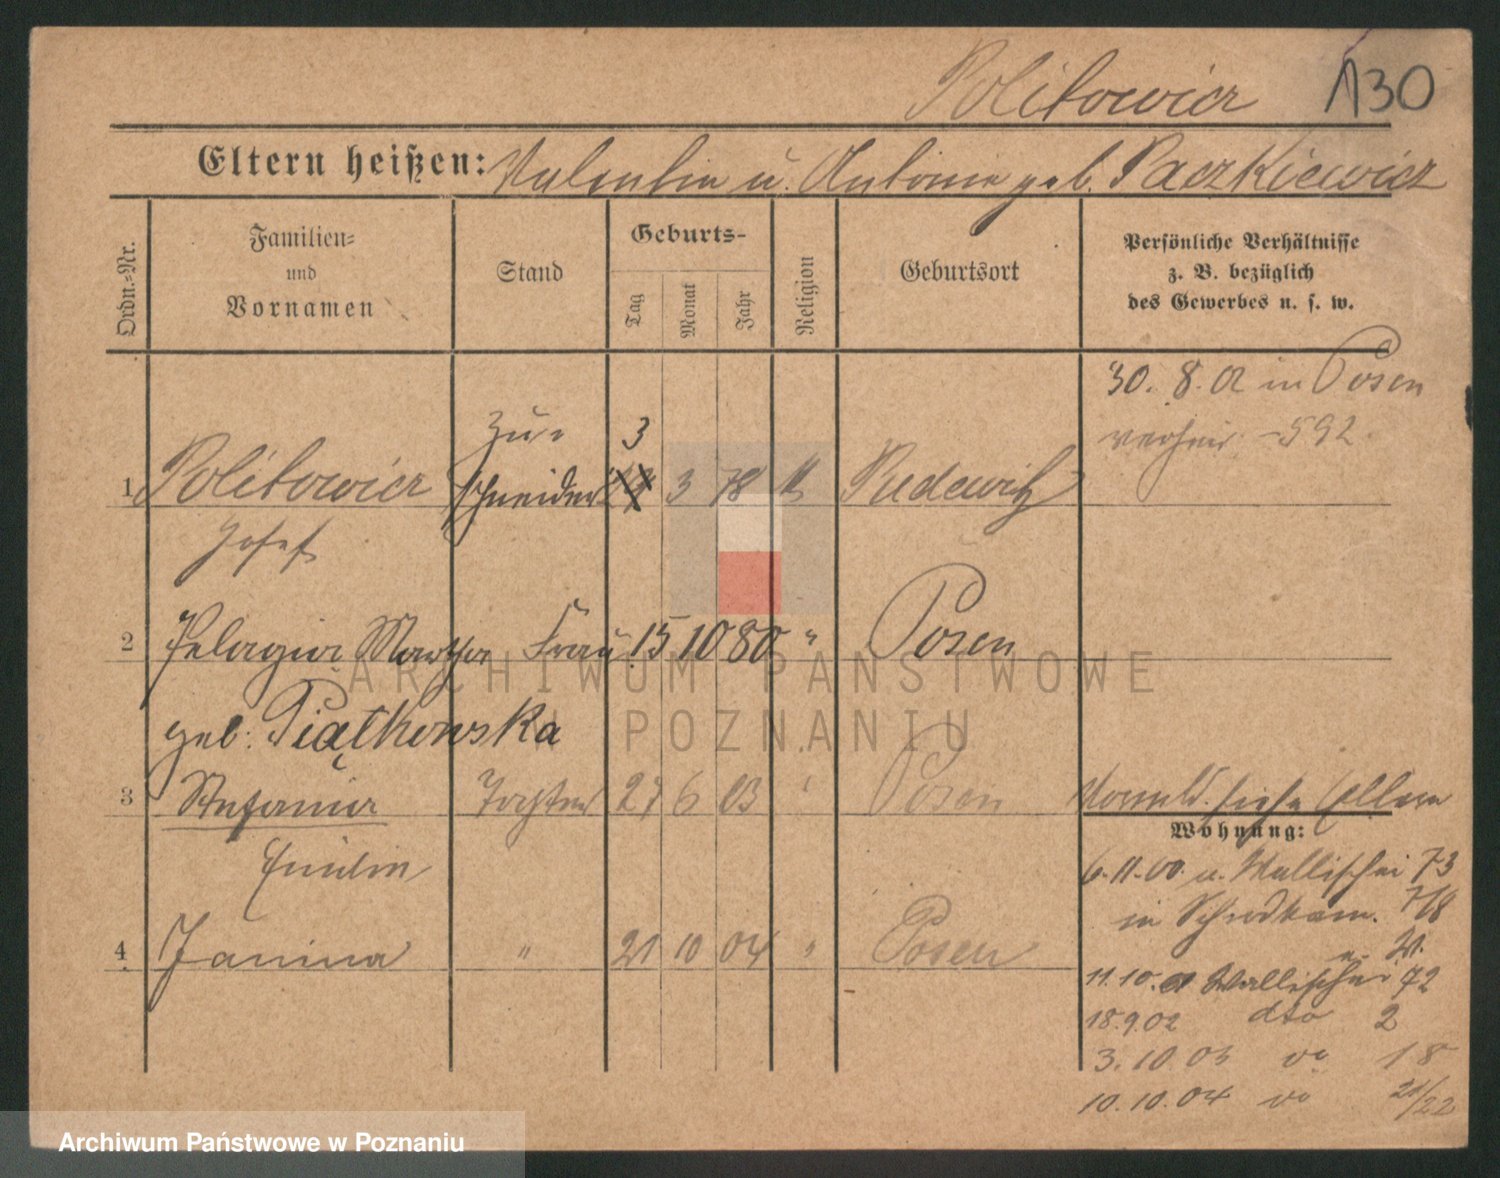 Politowicz 130
Eltern heißen: Valentin u. Antonie geb. Paczkiewicz
Ordn.-Nr.
Familien-
und
Vornamen
Stand
Geburts-
Tag
Monat
Jahr
Religion
Geburtsort
Persönliche Verhältnisse
z. B. bezüglich
des Gewerbes u. s. w.
30. 8. 02 in Posen
verheir. - 592
Zu- 3
1 Politowicz schneider 19 3 78 k Pudewitz
Josef
2 Pelagia Martha Frau 15 10 80 " Posen
geb. Piątkowska
3 Stefania Tochter 27 6 03 " Posen
siehe Eltern
Wohnung:
Emilie
6.11.00 a. Wallischei 73
in Schrodkam. 7/8
4 Janina " 21 10 04 " Posen
11.10. Wallischei 72
18.9.02 dto 2
3.10.03 do 18
10.10.04 do 21/22
ARCHIWUM PAŃSTWOWE
W POZNANIU
Archiwum Państwowe w Poznaniu